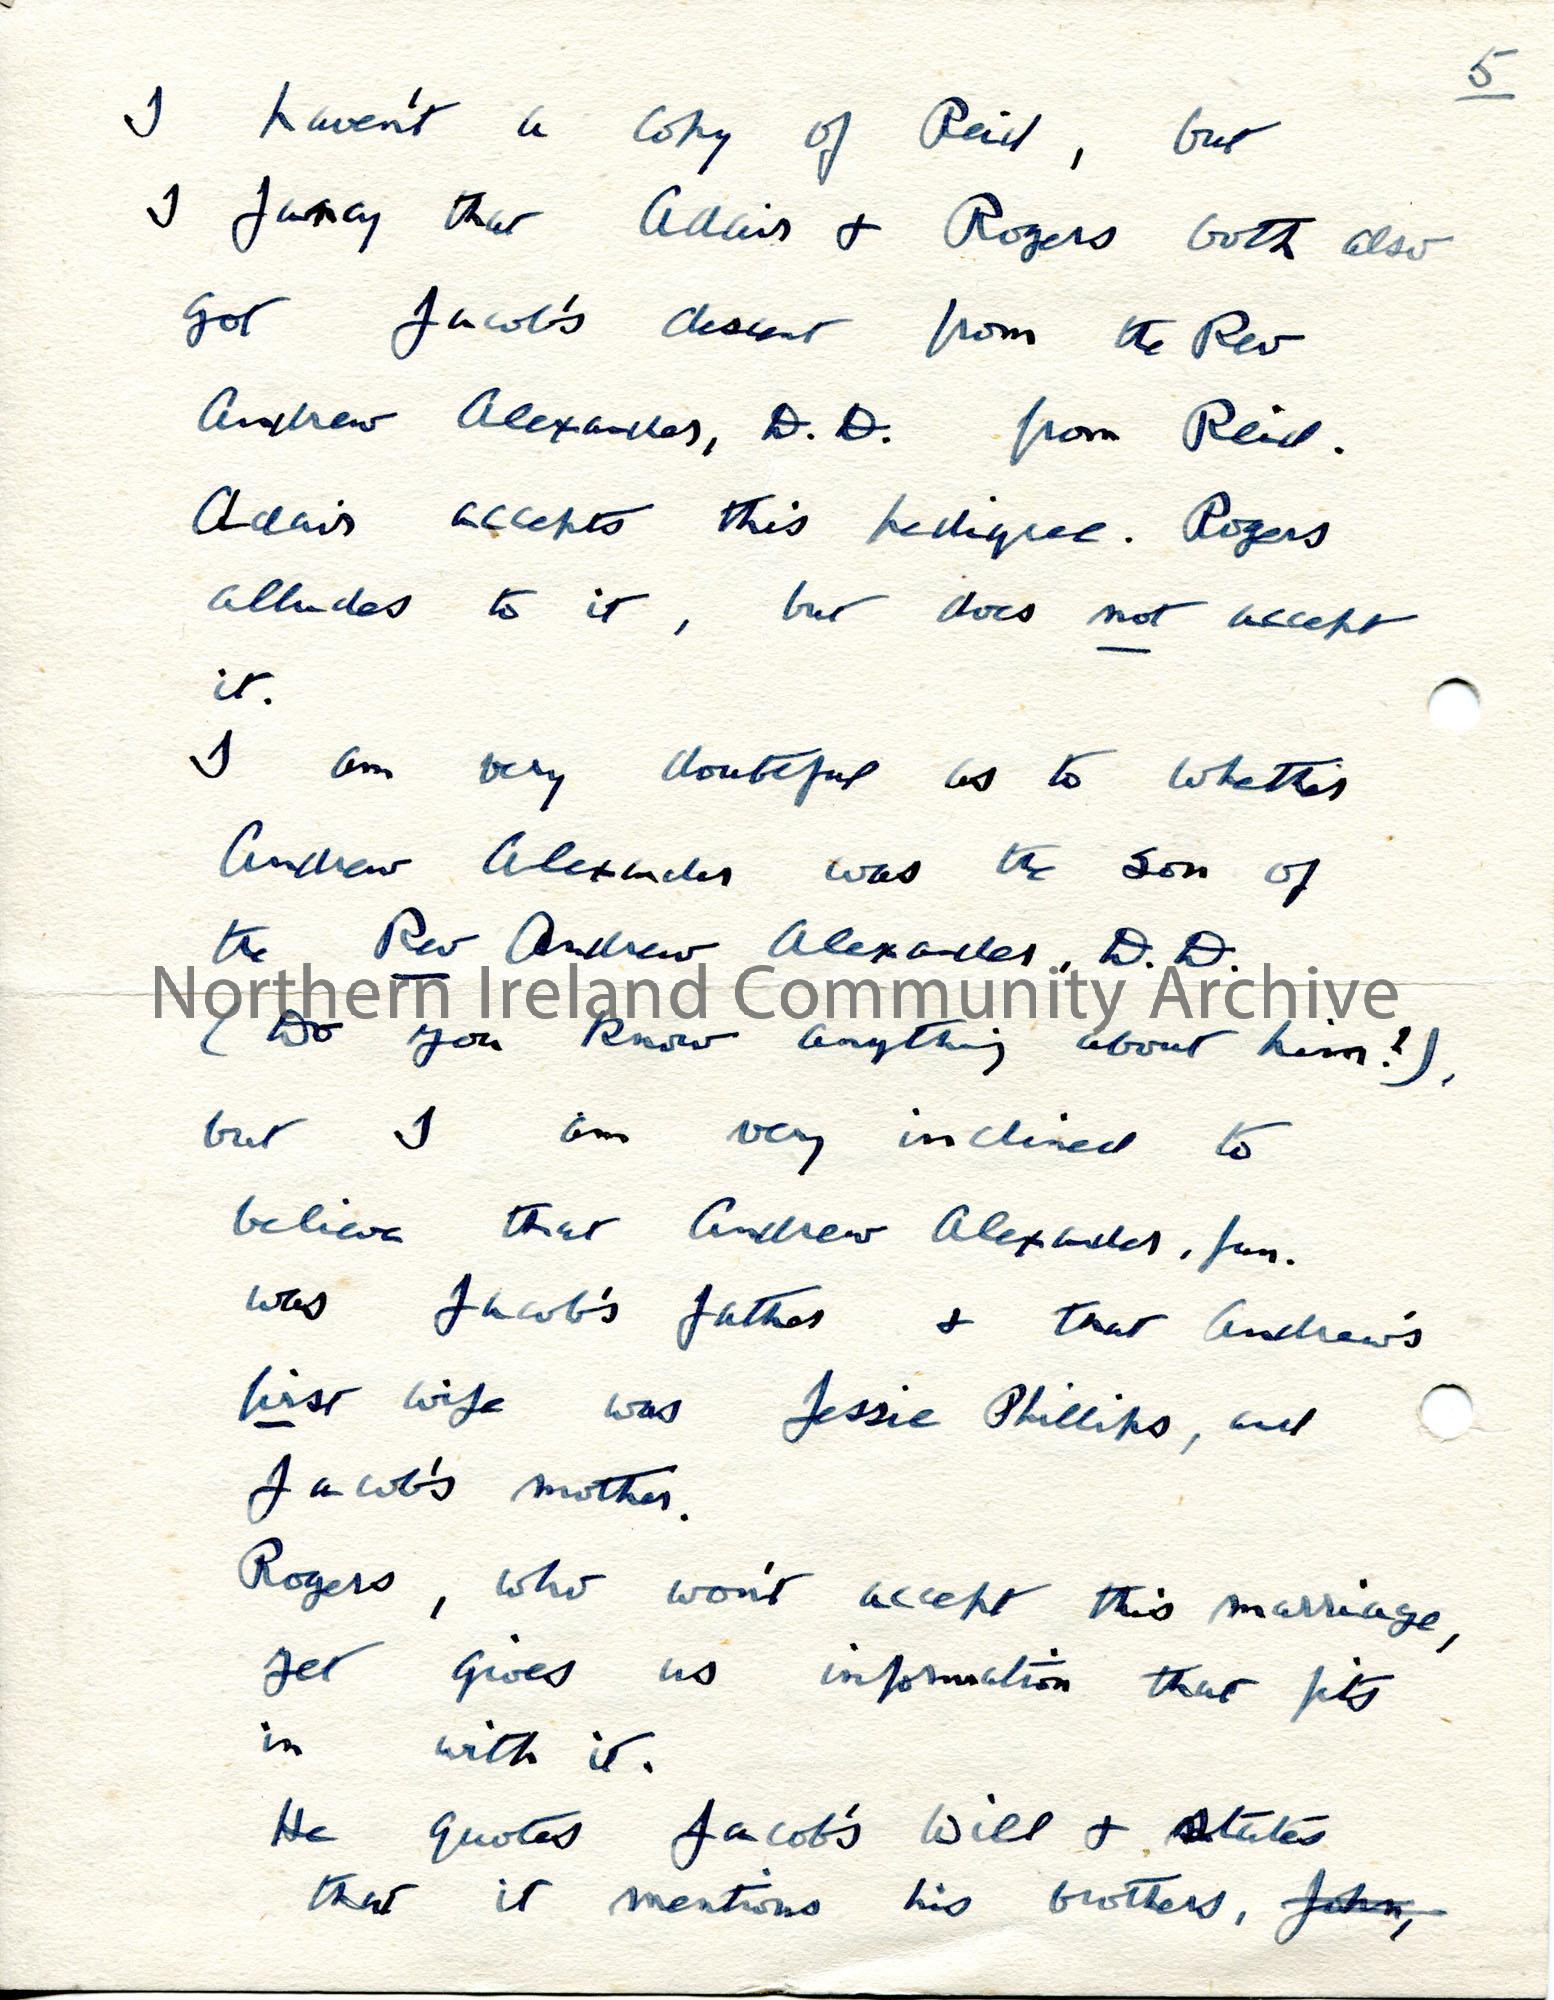 5
I haven't a copy of Reid, but
I fancy that Adair & Rogers both also
got Jacob's descent from the Rev
Andrew Alexander, D.D. from Reid.
Adair accepts this pedigree. Rogers
alludes to it, but does not accept
it.
I am very doubtful as to whether
Andrew Alexander was the son of
the Rev Andrew Alexander, D.D.
Northern Ireland Community Archive
(Do you know anything about him?),
but I am very inclined to
believe that Andrew Alexander, jun.
was Jacob's father & that Andrew's
first wife was Jessie Phillips, and
Jacob's mother.
Rogers, who won't accept this marriage,
yet gives us information that fits
in with it.
He quotes Jacob's Will & states
that it mentions his brothers, John,